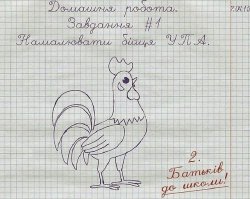 Домашня робота.
Завдання #1
Намалювати бійця УПА.
2.
Батьків
до школи!